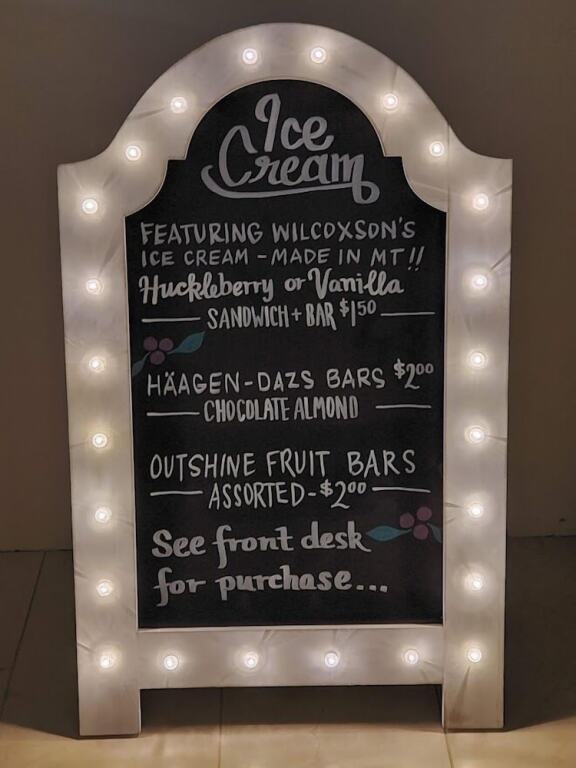 Ice
Cream
FEATURING WILCOXSON'S
ICE CREAM - MADE IN MT!!
Huckleberry or Vanilla
SANDWICH + BAR $1.50
HÄAGEN-DAZS BARS $2.00
CHOCOLATE ALMOND
OUTSHINE FRUIT BARS
ASSORTED - $2.00
See front desk
for purchase...